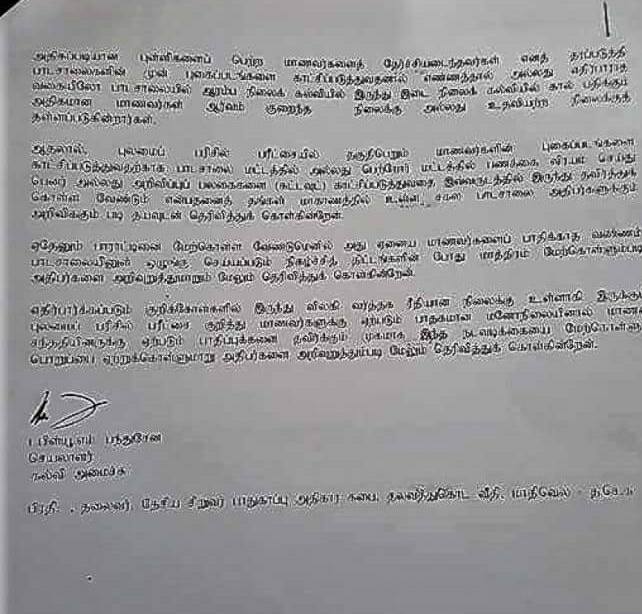 அதிகப்படியான புள்ளிகளைப் பெற்ற மாணவர்களைத் தேர்ச்சியடைந்தவர்கள் எனத் தரப்படுத்தி
பாடசாலைகளின் முன் புகைப்படங்களை காட்சிப்படுத்துவதனால் எண்ணத்தால் அல்லது எதிர்பாராத
வகையிலோ பாடசாலையில் ஆரம்ப நிலைக் கல்வியில் இருந்து இடை நிலைக் கல்வியில் கால் பதிக்கும்
அதிகமான மாணவர்கள் ஆர்வம் குறைந்த நிலைக்கு அல்லது உதவியற்ற நிலைக்குத்
தள்ளப்படுகின்றார்கள்.
ஆதலால், புலமைப் பரிசில் பரீட்சையில் தகுதிபெறும் மாணவர்களின் புகைப்படங்களை
காட்சிப்படுத்துவதற்காக பாடசாலை மட்டத்தில் அல்லது பெற்றோர் மட்டத்தில் பணத்தை விரயம் செய்து
பெனர் அல்லது அறிவிப்புப் பலகைகளை (கட்டவுட்) காட்சிப்படுத்துவதை இவ்வருடத்தில் இருந்து தவிர்த்துக்
கொள்ள வேண்டும் என்பதனைத் தங்கள் மாகாணத்தில் உள்ள சகல பாடசாலை அதிபர்களுக்கும்
அறிவிக்கும் படி தயவுடன் தெரிவித்துக் கொள்கின்றேன்.
ஏதேனும் பாராட்டினை மேற்கொள்ள வேண்டுமெனில் அது ஏனைய மாணவர்களைப் பாதிக்காத வண்ணம்
பாடசாலையினுள் ஒழுங்கு செய்யப்படும் நிகழ்ச்சித் திட்டங்களின் போது மாத்திரம் மேற்கொள்ளும்படி
அதிபர்களை அறிவுறுத்துமாறும் மேலும் தெரிவித்துக் கொள்கின்றேன்.
எதிர்பார்க்கப்படும் குறிக்கோள்களில் இருந்து விலகி வர்த்தக ரீதியான நிலைக்கு உள்ளாகி இருக்கும்
புலமைப் பரிசில் பரீட்சை குறித்து மாணவர்களுக்கு ஏற்படும் பாதகமான மனோநிலையினால் மாண
சந்ததியினருக்கு ஏற்படும் பாதிப்புக்களை தவிர்க்கும் முகமாக இந்த நடவடிக்கையை மேற்கொள்ளு
பொறுப்பை ஏற்றுக்கொள்ளுமாறு அதிபர்களை அறிவுறுத்தும்படி மேலும் தெரிவித்துக் கொள்கின்றேன்.
டபிள்யூ.எம். பந்துசேன
செயலாளர்
கல்வி அமைச்சு
பிரதி: . தலைவர், தேசிய சிறுவர் பாதுகாப்பு அதிகார சபை, தலவத்துகொட வீதி, மாதிவெல -